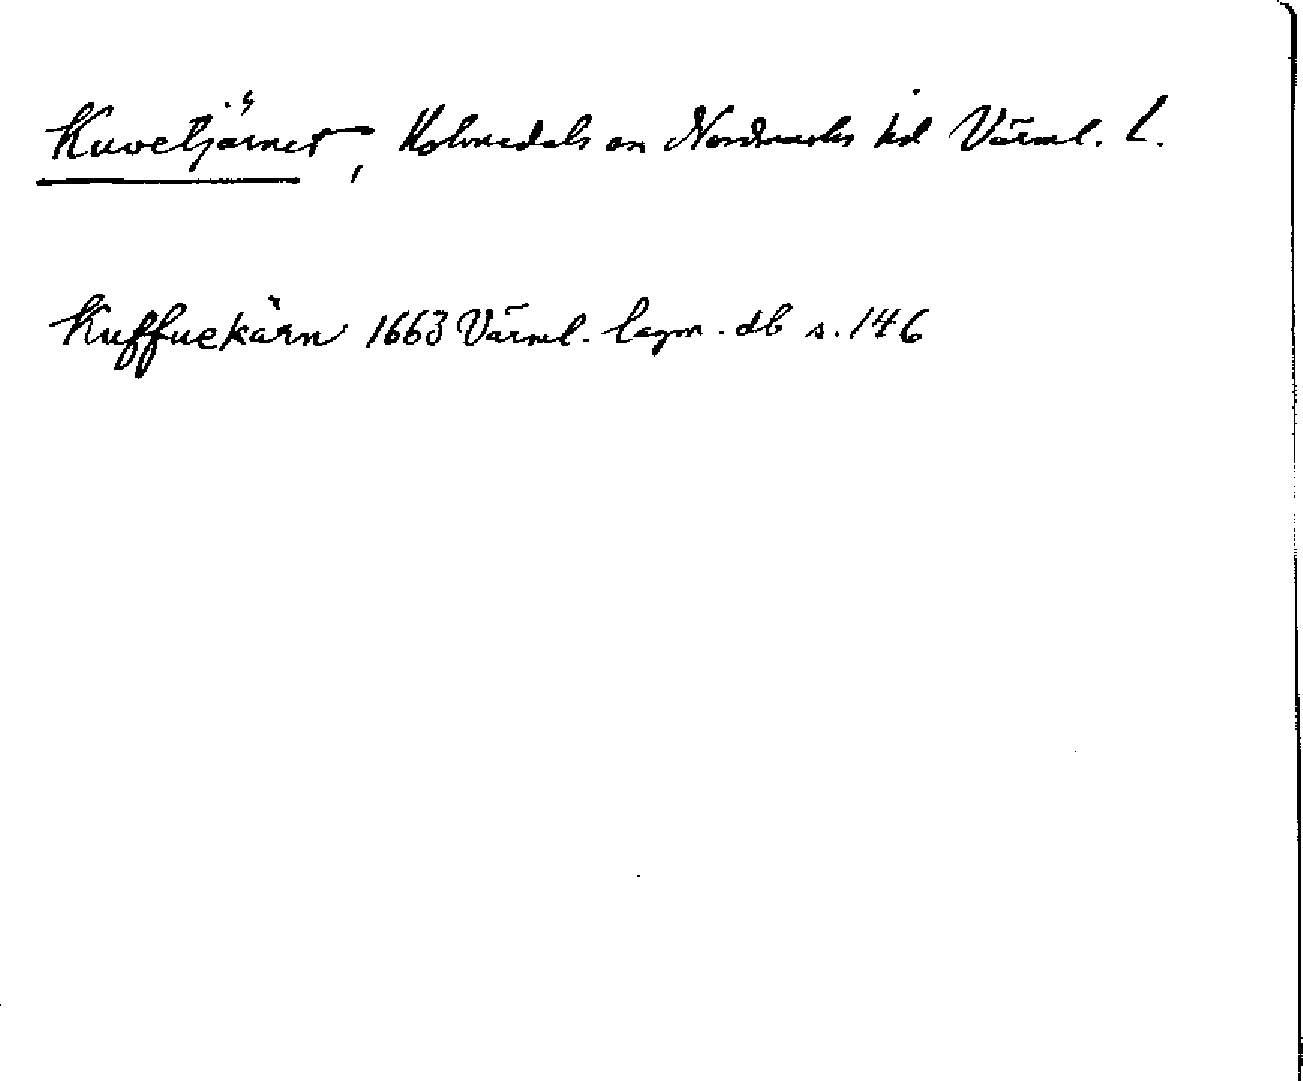 Kuvetjärnet, Holmedals sn Nordmarks hd Värml. l.
Kuffuekärn 1663 Värml. lagm. db s. 146